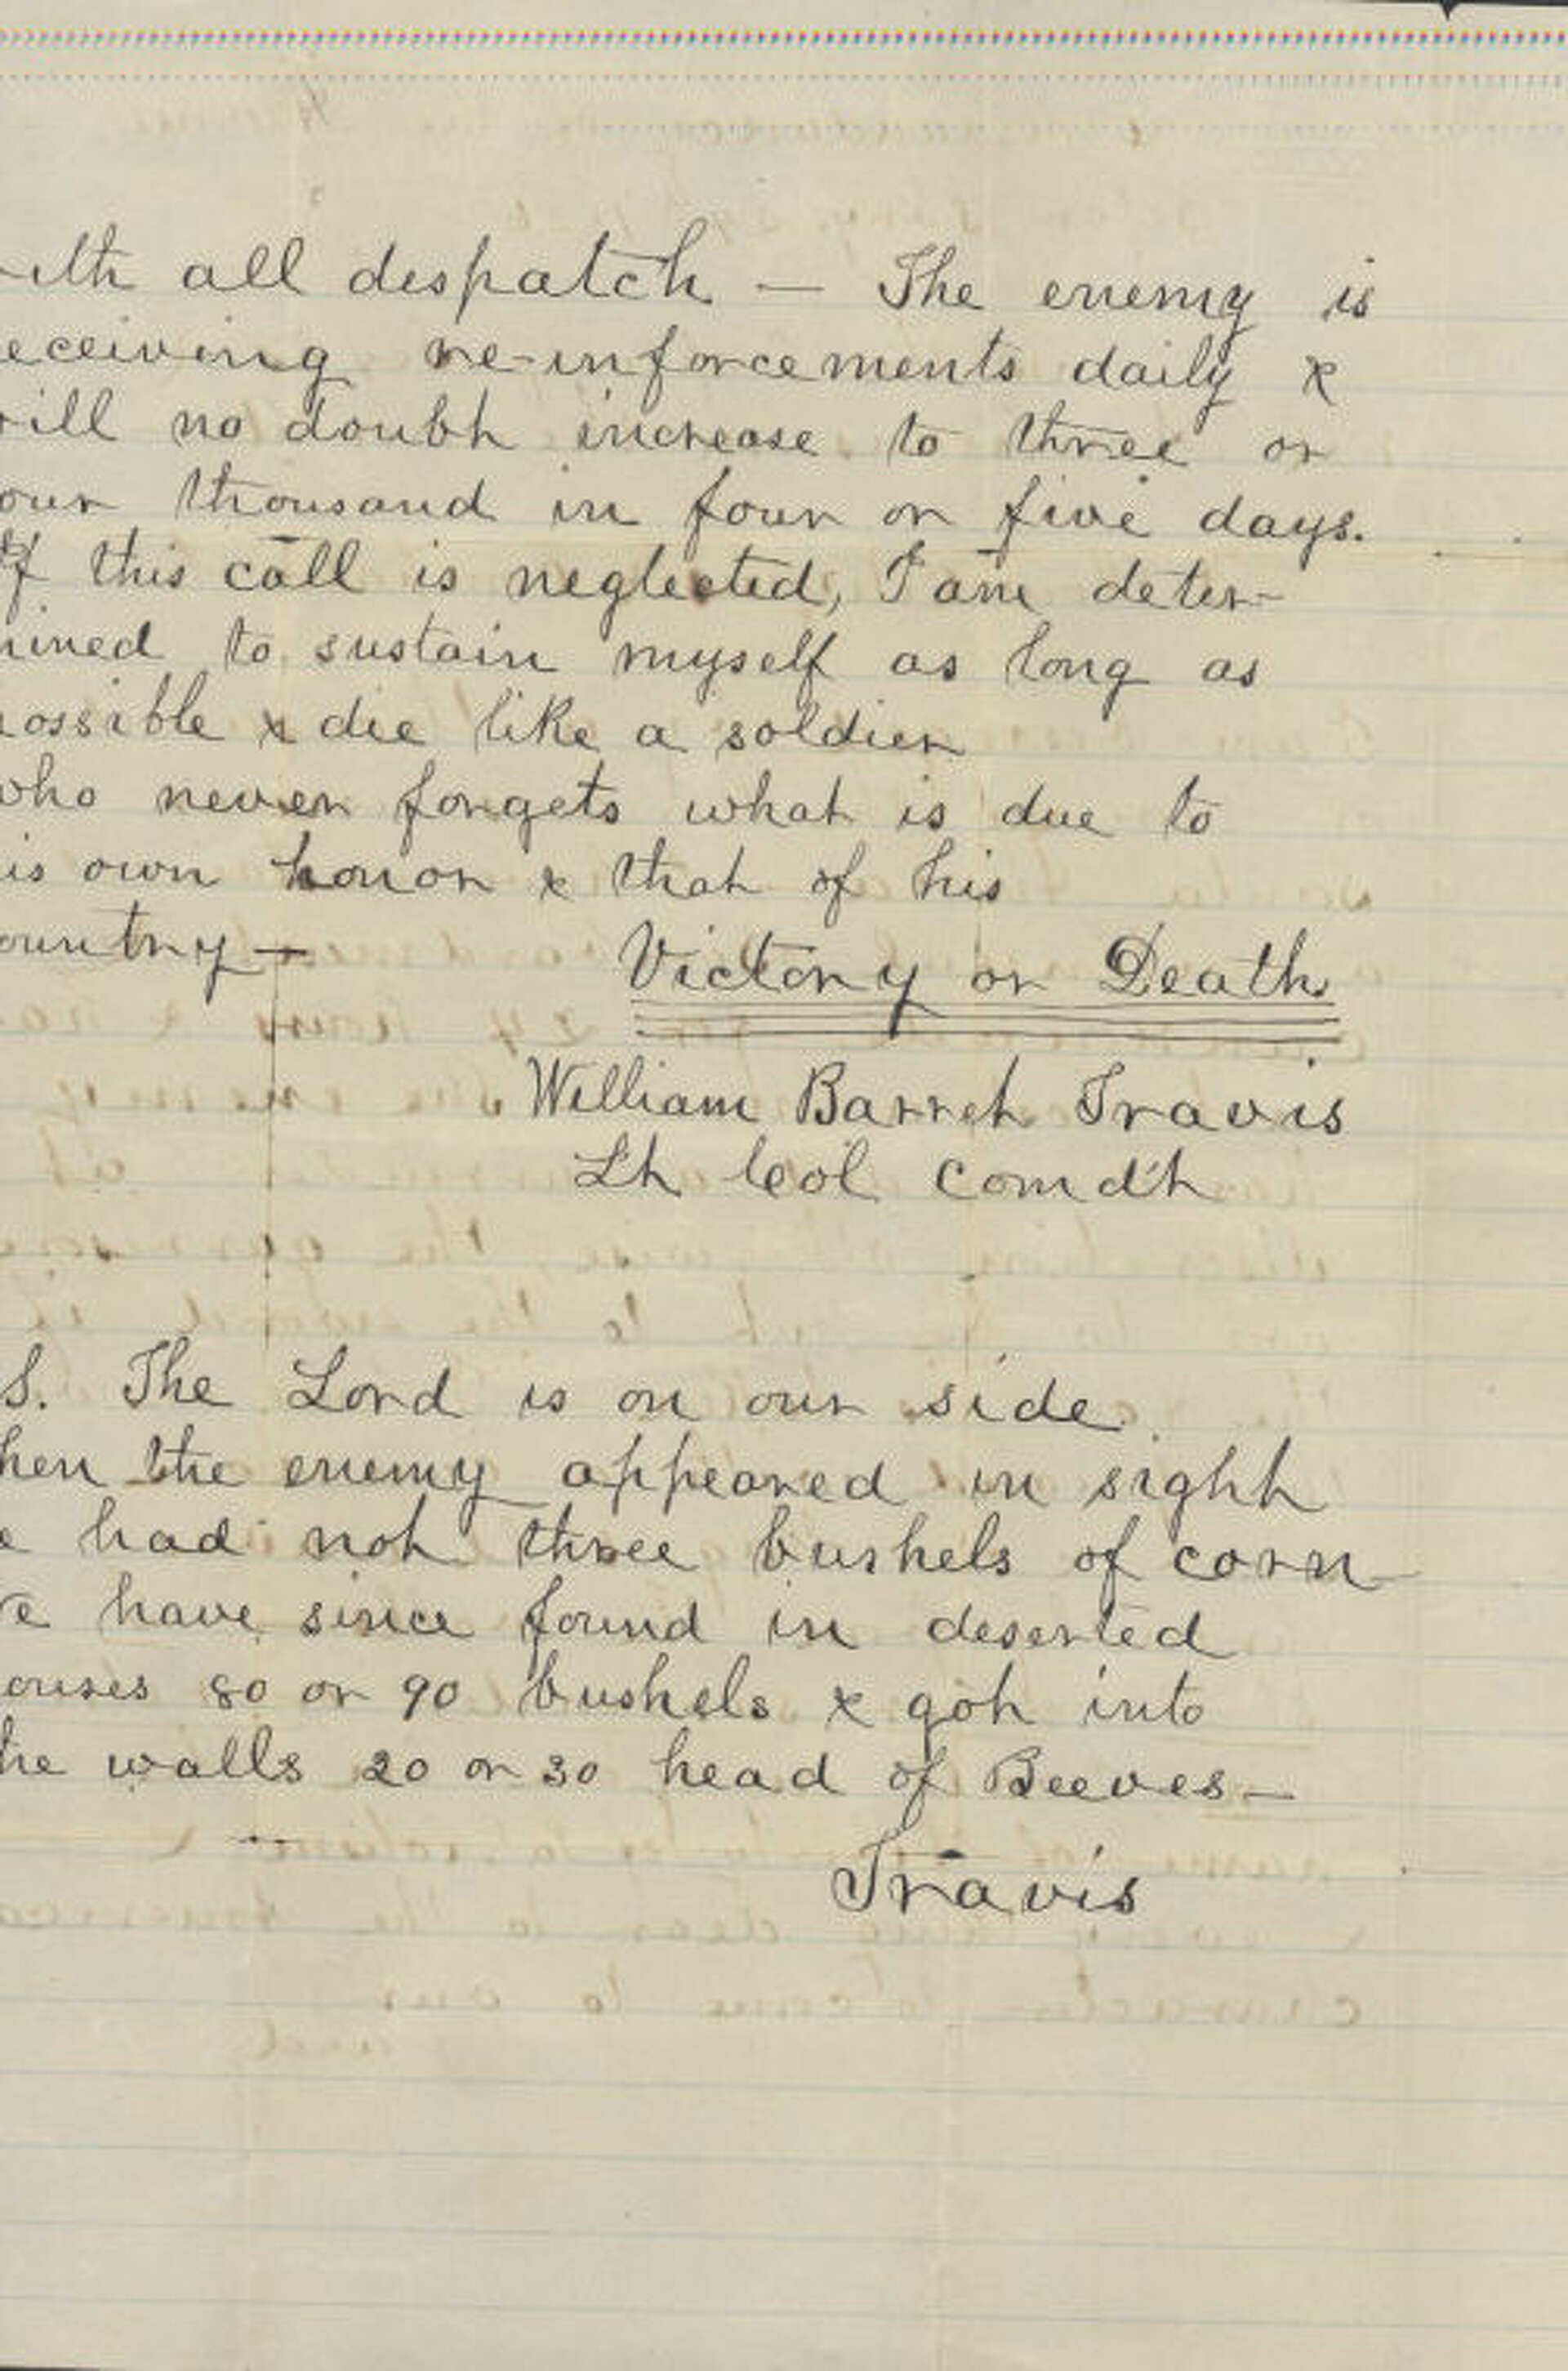 ith all despatch — The enemy is
eceiving re-inforcements daily &
ill no doubt increase to three or
our thousand in four or five days.
If this call is neglected, I am deter-
ined to sustain myself as long as
ossible & die like a soldier
who never forgets what is due to
is own honor & that of his
ountry — Victory or Death
William Barret Travis
Lt Col comd't
S. The Lord is on our side.
hen the enemy appeared in sight
e had not three bushels of corn
e have since found in deserted
ouses 80 or 90 bushels & got into
he walls 20 or 30 head of Beeves —
Travis